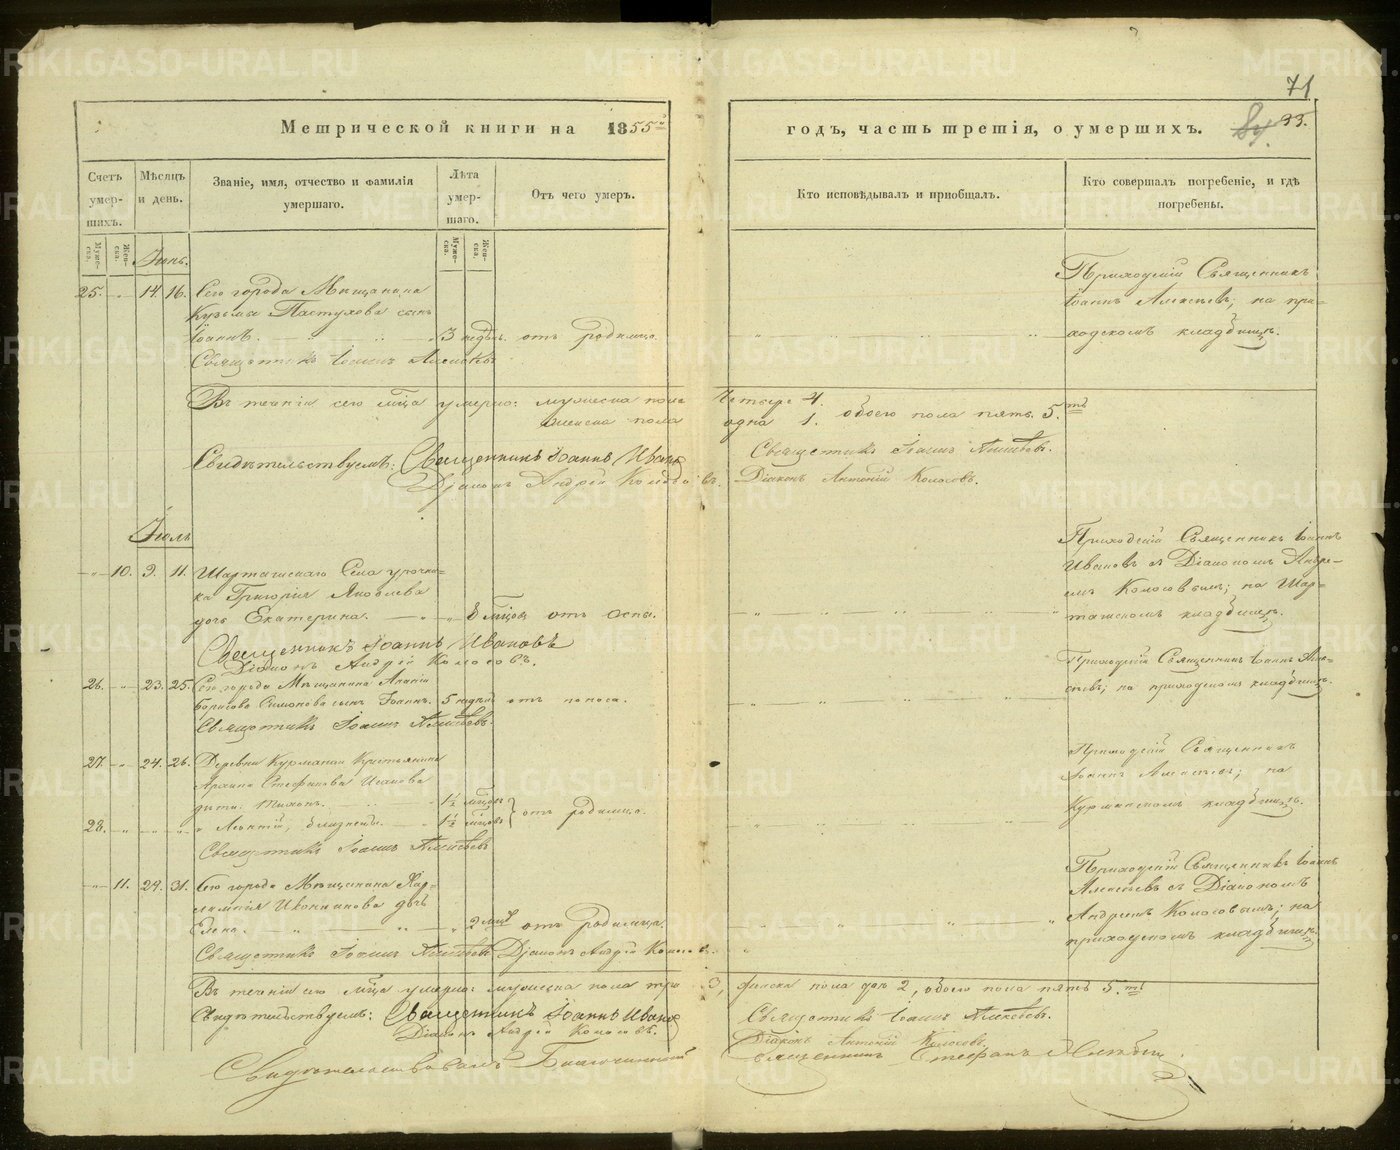 71
Метрической книги на 1855й
годъ, часть третія, о умершихъ.
33.
Счетъ умер-шихъ.
Мѣсяцъ и день.
Званіе, имя, отчество и фамилія умершаго.
Лѣта умер-шаго.
Отъ чего умеръ.
Кто исповѣдывалъ и пріобщалъ.
Кто совершалъ погребеніе, и гдѣ погребены.
Муже-ска.
Жен-ска.
Муже-ска.
Жен-ска.
Іюнь.
25. 14. 16. Сего города Мѣщанина
Кузьмы Пастухова сынъ
Іоаннъ. 3 недѣл. отъ родимца.
Священникъ Іоаннъ Алексѣевъ
Приходскій Священникъ
Іоаннъ Алексѣевъ; на при-
ходскомъ кладбищѣ.
Въ теченіи сего мѣсяца умерло: мужеска пола четыре 4.
женска пола одна 1. обоего пола пять 5.ть
Свидѣтельствуемъ: Священникъ Іоаннъ Ивановъ
Діаконъ Андрей Колосовъ.
Священникъ Іоаннъ Алексѣевъ.
Діаконъ Антоній Колосовъ.
Іюль
10. 9. 11. Шарташскаго Села урочни-
ка Григорія Яковлева
дочь Екатерина. 8 мѣсяцовъ отъ оспы.
Священникъ Іоаннъ Ивановъ
Діаконъ Андрей Колосовъ.
Приходскій Священникъ Іоаннъ
Ивановъ съ Діакономъ Андре-
емъ Колосовымъ; на Шар-
ташскомъ кладбищѣ.
26. 23. 25. Сего города Мѣщанина Ананіи
Борисова Симонова сынъ Іоаннъ. 5 недѣль отъ поноса.
Священникъ Іоаннъ Алексѣевъ.
Приходскій Священникъ Іоаннъ Алек-
сѣевъ; на приходскомъ кладбищѣ.
27. 24. 26. Деревни Курманки Крестьянина
Архипа Стефанова Исакова
дѣти: Тихонъ. 1½ мѣсяцовъ
28. Леонтій, близнецы. 1½ мѣсяцовъ отъ родимца.
Священникъ Іоаннъ Алексѣевъ
Приходскій Священникъ
Іоаннъ Алексѣевъ; на
Курманскомъ кладбищѣ.
11. 29. 31. Сего города Мѣщанина Хар-
лампія Иконникова дочь
Елена. 2 мѣсяц. отъ родимца.
Священникъ Іоаннъ Алексѣевъ Діаконъ Андрей Колосовъ.
Приходскій Священникъ Іоаннъ
Алексѣевъ съ Діакономъ
Андреемъ Колосовымъ; на
приходскомъ кладбищѣ.
Въ теченіи сего мѣсяца умерло: мужеска пола три 3, женска пола двѣ 2, обоего пола пять 5.ть
Свидѣтельствуемъ: Священникъ Іоаннъ Ивановъ
Діаконъ Андрей Колосовъ.
Священникъ Іоаннъ Алексѣевъ.
Діаконъ Антоній Колосовъ.
Свидѣтельствовалъ Благочинный
Священникъ Стефанъ
METRIKI.GASO-URAL.RU